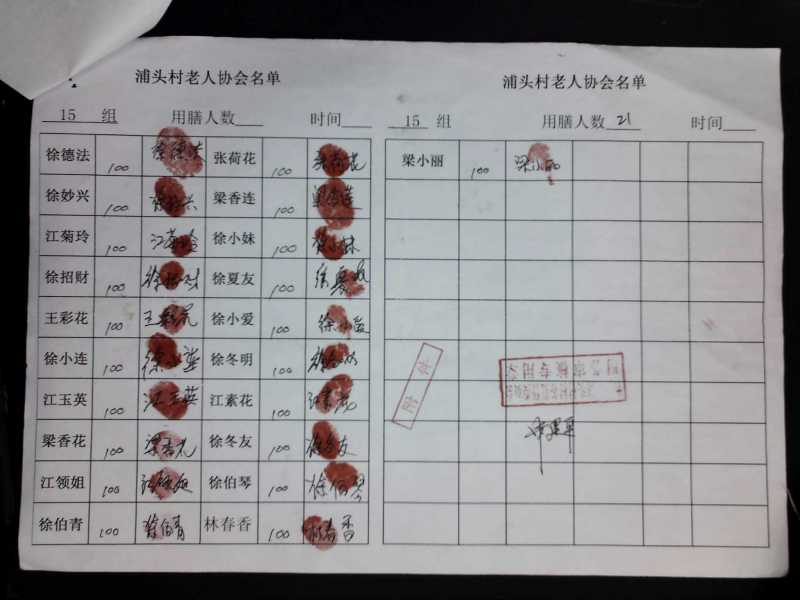 浦头村老人协会名单
15 组 用膳人数 时间
徐德法 100 徐德法 张荷花 100 张荷花
徐妙兴 100 徐妙兴 梁香连 100 梁香莲
江菊玲 100 江菊玲 徐小妹 100 徐小妹
徐招财 100 徐招财 徐夏友 100 徐夏友
王彩花 100 王彩花 徐小爱 100 徐小爱
徐小连 100 徐小莲 徐冬明 100
江玉英 100 江玉英 江素花 100 江素花
梁香花 100 梁香花 徐冬友 100 徐冬友
江领姐 100 江领姐 徐伯琴 100 徐伯琴
徐伯青 100 徐伯青 林春香 100 林春香
浦头村老人协会名单
15 组 用膳人数 21 时间
梁小丽 100 梁小丽
附件